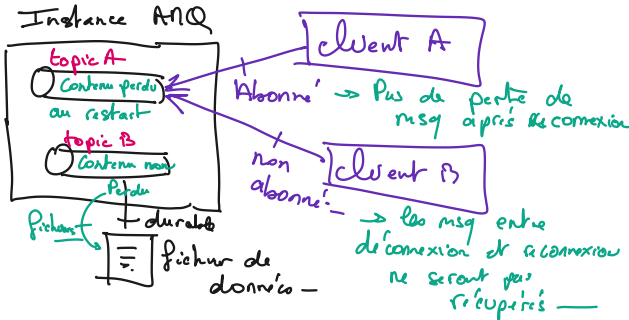 Instance AMQ
topic A
Contenu perdu
au restart
topic B
Contenu non
Perdu
fichiers
durable
fichier de
données
client A
Abonné
→ Pas de perte de
msg après reconnexion
client B
non
abonné
→ les msg entre
déconnexion et reconnexion
ne seront pas
récupérés